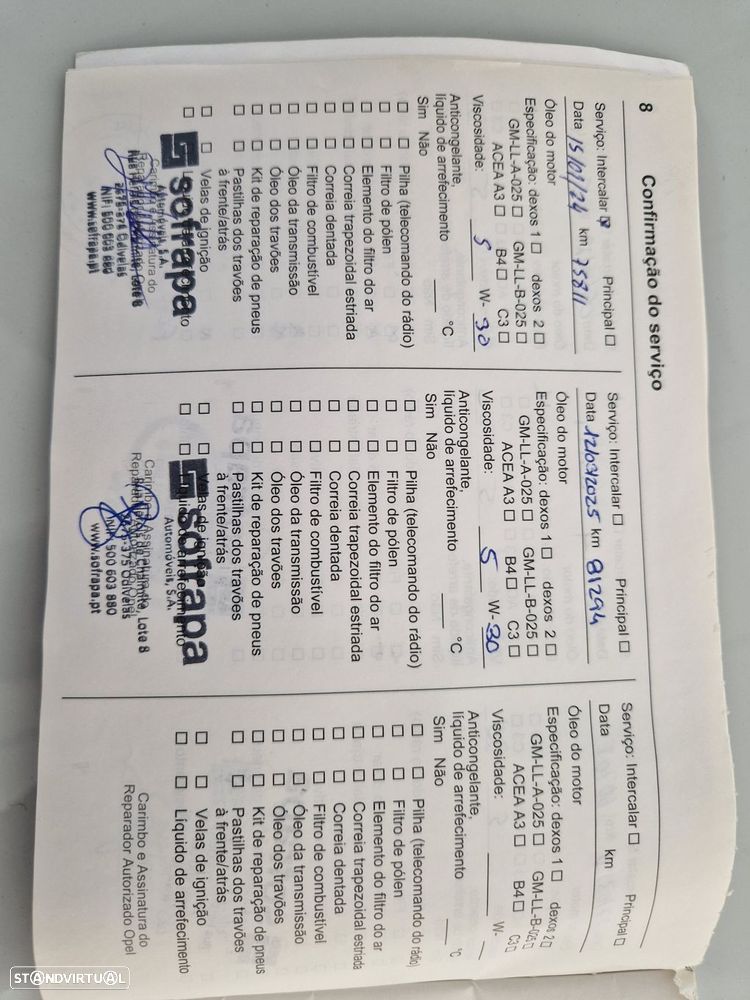 8
Confirmação do serviço
Serviço: Intercalar ☐ Principal ☐
Data 15/01/24 km 75811
Óleo do motor
Especificação: dexos 1 ☐ dexos 2 ☐
GM-LL-A-025 ☐ GM-LL-B-025 ☐
ACEA A3 ☐ B4 ☐ C3 ☐
Viscosidade: 5 W- 30
Anticongelante,
líquido de arrefecimento °C
Sim Não
☐ ☐ Pilha (telecomando do rádio)
☐ ☐ Filtro de pólen
☐ ☐ Elemento do filtro do ar
☐ ☐ Correia trapezoidal estriada
☐ ☐ Correia dentada
☐ ☐ Filtro de combustível
☐ ☐ Óleo da transmissão
☐ ☐ Óleo dos travões
☐ ☐ Kit de reparação de pneus
☐ ☐ Pastilhas dos travões
à frente/atrás
☐ ☐ Velas de ignição
sofrapa
Automóveis, S.A.
Lote 8
2675-375 Odivelas
NIF: 500 603 880
www.sofrapa.pt
Serviço: Intercalar ☐ Principal ☐
Data 12/03/2025 km 81294
Óleo do motor
Especificação: dexos 1 ☐ dexos 2 ☐
GM-LL-A-025 ☐ GM-LL-B-025 ☐
ACEA A3 ☐ B4 ☐ C3 ☐
Viscosidade: 5 W- 30
Anticongelante,
líquido de arrefecimento °C
Sim Não
☐ ☐ Pilha (telecomando do rádio)
☐ ☐ Filtro de pólen
☐ ☐ Elemento do filtro do ar
☐ ☐ Correia trapezoidal estriada
☐ ☐ Correia dentada
☐ ☐ Filtro de combustível
☐ ☐ Óleo da transmissão
☐ ☐ Óleo dos travões
☐ ☐ Kit de reparação de pneus
☐ ☐ Pastilhas dos travões
à frente/atrás
☐ ☐ Velas de ignição
☐ ☐ Líquido de arrefecimento
sofrapa
Automóveis, S.A.
Carimbo e Assinatura do
Lote 8
2675-375 Odivelas
NIF: 500 603 880
www.sofrapa.pt
Serviço: Intercalar ☐ Principal ☐
Data km
Óleo do motor
Especificação: dexos 1 ☐ dexos 2 ☐
GM-LL-A-025 ☐ GM-LL-B-025 ☐
ACEA A3 ☐ B4 ☐ C3 ☐
Viscosidade: W-
Anticongelante,
líquido de arrefecimento °C
Sim Não
☐ ☐ Pilha (telecomando do rádio)
☐ ☐ Filtro de pólen
☐ ☐ Elemento do filtro do ar
☐ ☐ Correia trapezoidal estriada
☐ ☐ Correia dentada
☐ ☐ Filtro de combustível
☐ ☐ Óleo da transmissão
☐ ☐ Óleo dos travões
☐ ☐ Kit de reparação de pneus
☐ ☐ Pastilhas dos travões
à frente/atrás
☐ ☐ Velas de ignição
☐ ☐ Líquido de arrefecimento
Carimbo e Assinatura do
Reparador Autorizado Opel
STANDVIRTUAL